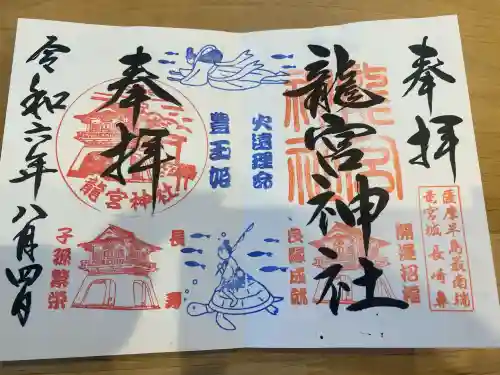 奉拝
薩摩半島最南端
竜宮城 長崎鼻
龍宮神社
開運招福
良縁成就
火遠理命
豊玉姫
奉拝
龍宮神社
長寿
子孫繁栄
令和六年八月四日